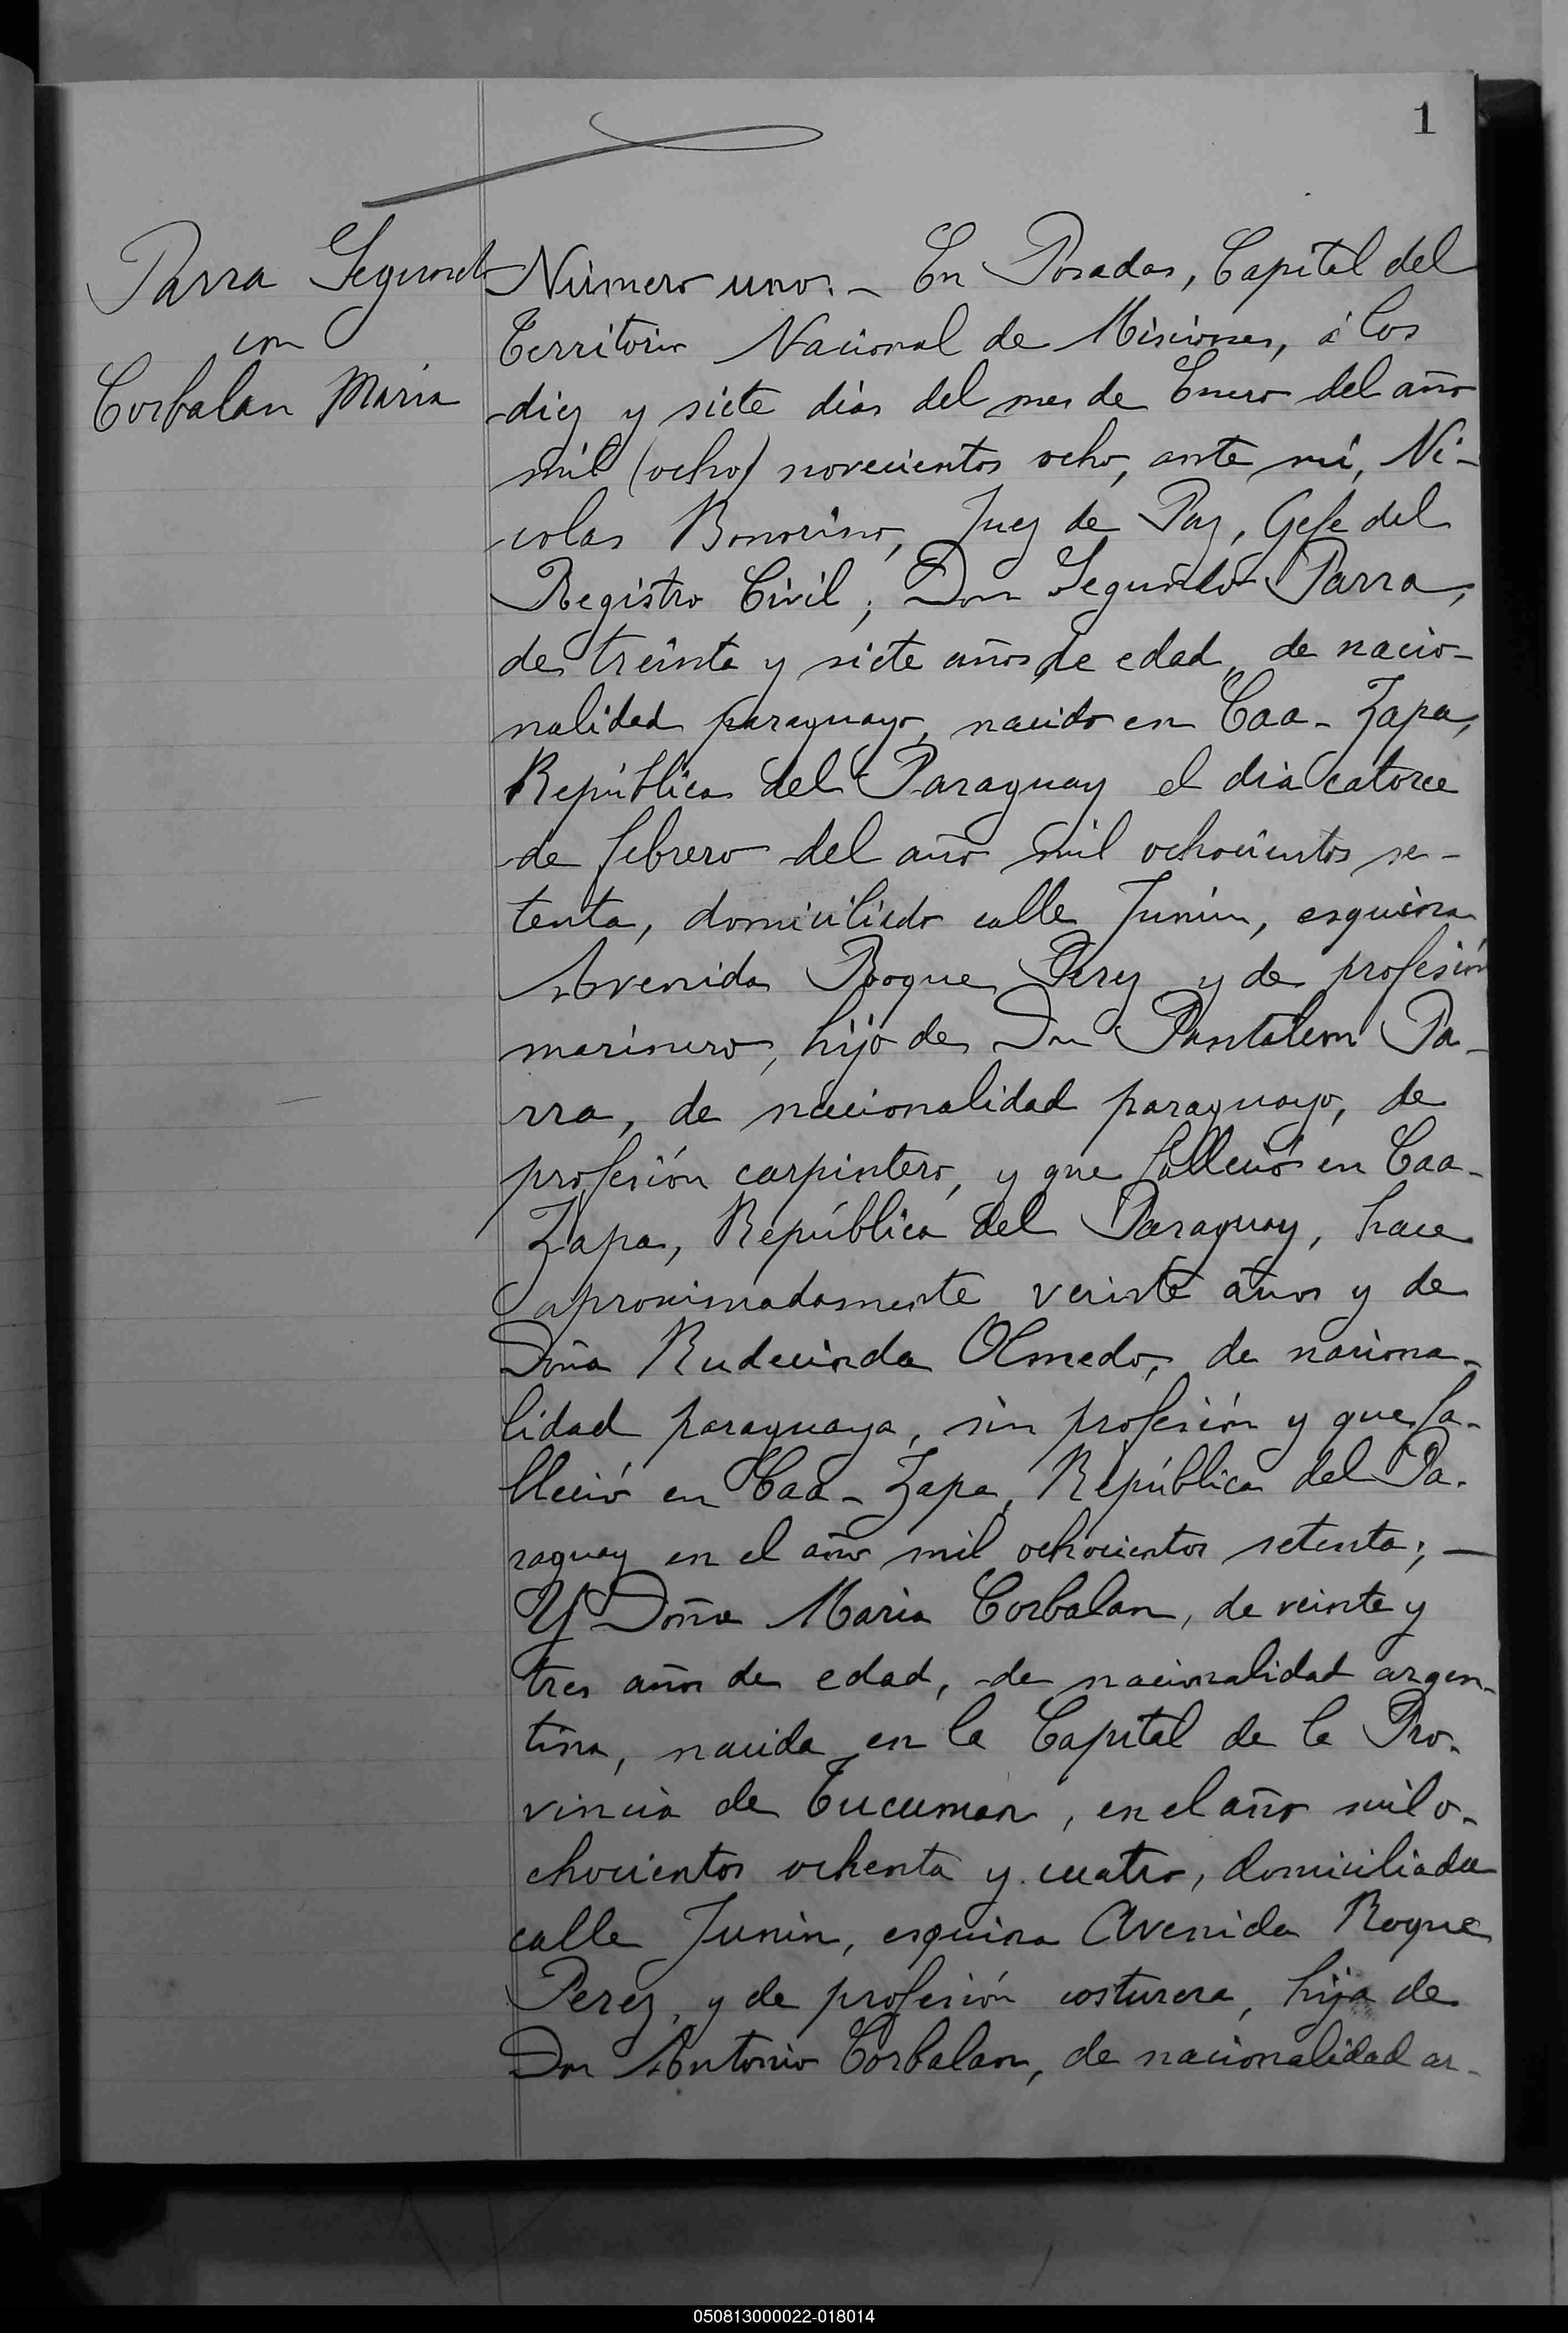 1
Parra Segundo
con
Corbalan Maria
Número uno. – En Posadas, Capital del
Territorio Nacional de Misiones, á los
diez y siete dias del mes de Enero del año
mil (ocho) novecientos ocho, ante mí, Ni-
colas Bonorino, Juez de Paz, Gefe del
Registro Civil; Don Segundo Parra,
de treinta y siete años de edad, de nacio-
nalidad paraguayo, nacido en Caa-Zapa,
República del Paraguay el dia catorce
de febrero del año mil ochocientos se-
tenta, domiciliado calle Junin, esquina
Avenida Roque Perez y de profesión
marinero, hijo de Don Pantaleon Pa-
rra, de nacionalidad paraguayo, de
profesión carpintero, y que falleció en Caa-
Zapa, República del Paraguay, hace
aproximadamente veinte años y de
Doña Rudecinda Olmedo, de naciona-
lidad paraguaya, sin profesión y que fa-
lleció en Caa-Zapa, República del Pa-
raguay en el año mil ochocientos setenta; —
Y Doña Maria Corbalan, de veinte y
tres años de edad, de nacionalidad argen-
tina, nacida en la Capital de la Pro-
vincia de Tucuman, en el año mil o-
chocientos ochenta y cuatro, domiciliada
calle Junin, esquina Avenida Roque
Perez, y de profesión costurera, hija de
Don Antonio Corbalan, de nacionalidad ar-
050813000022-018014